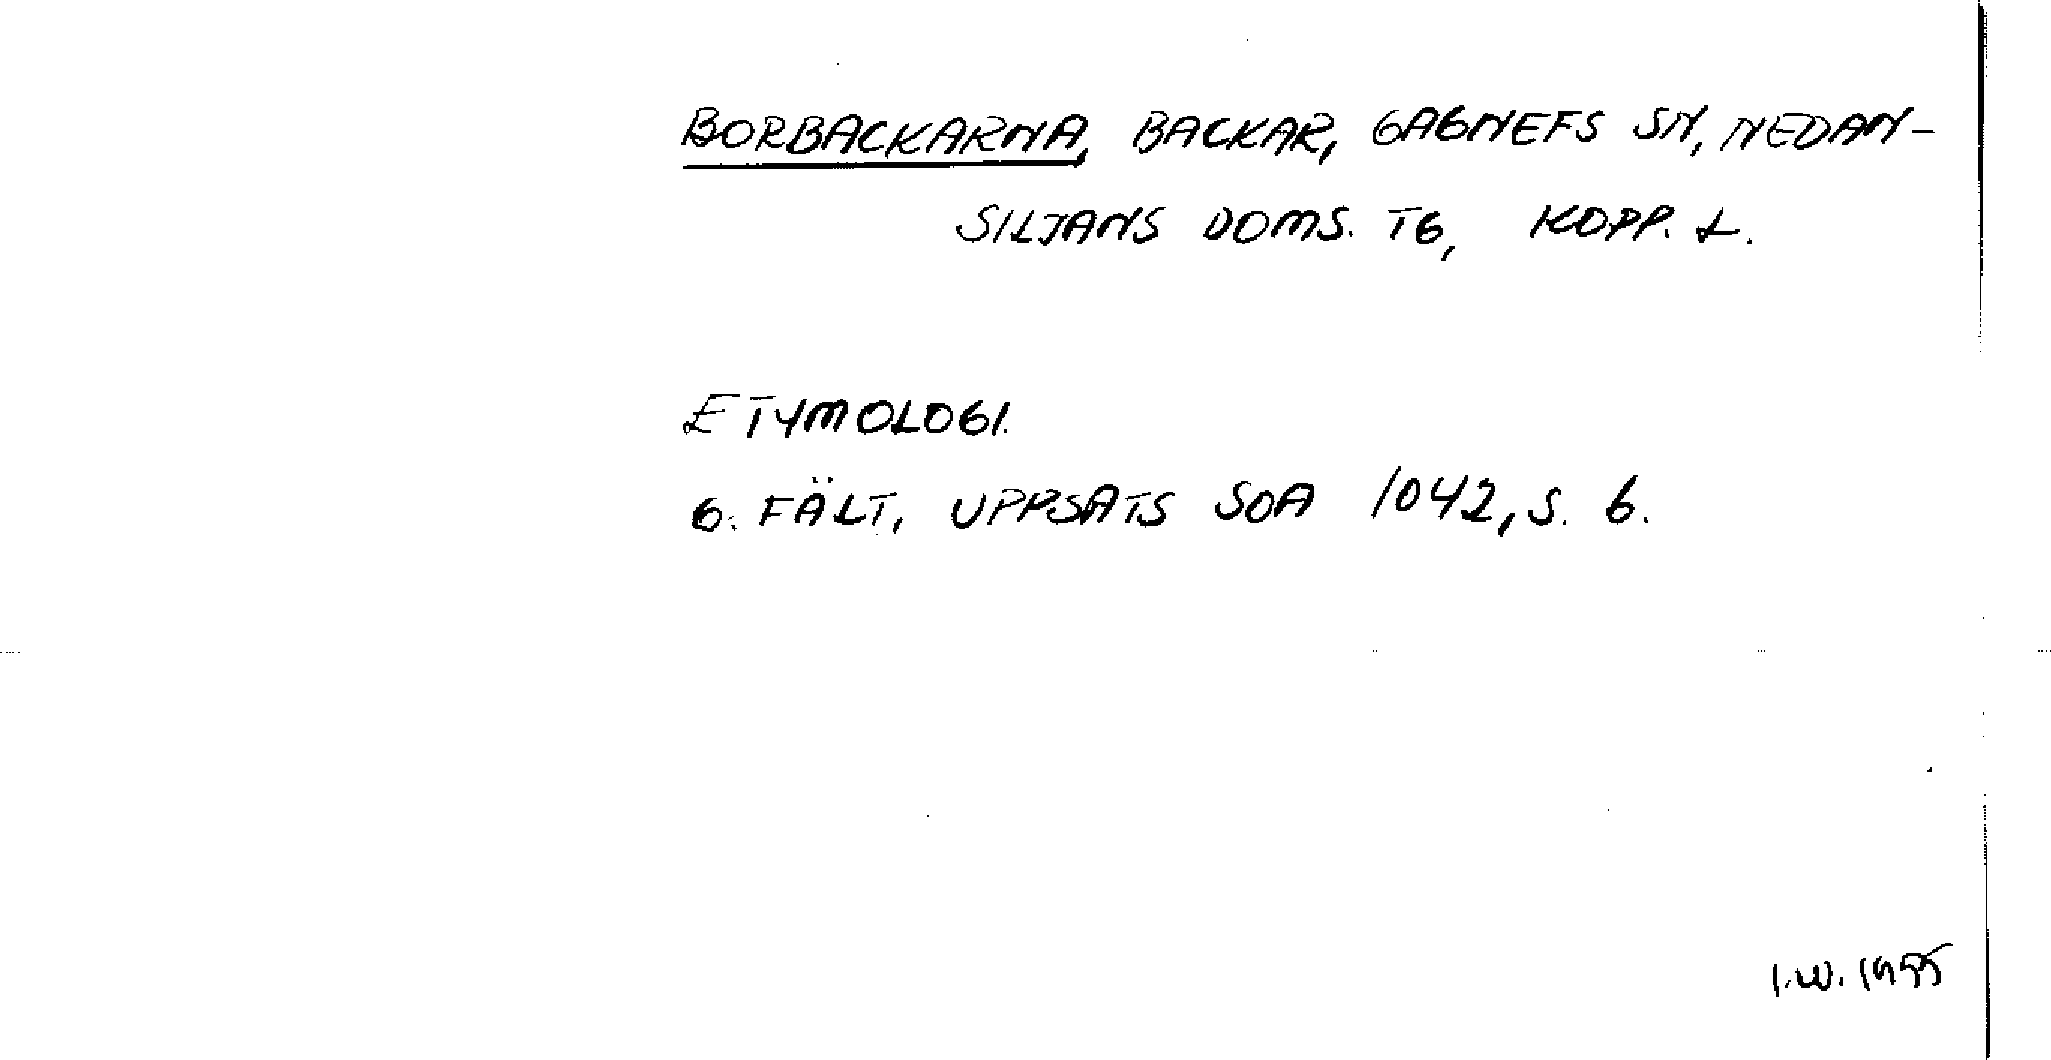 BORBACKARNA, BACKAR, GAGNEFS SN, NEDAN-
SILJANS DOMS. TG, KOPP. L.
ETYMOLOGI.
G. FÄLT, UPPSATS SOA 1042, S. 6.
I.W. 1955